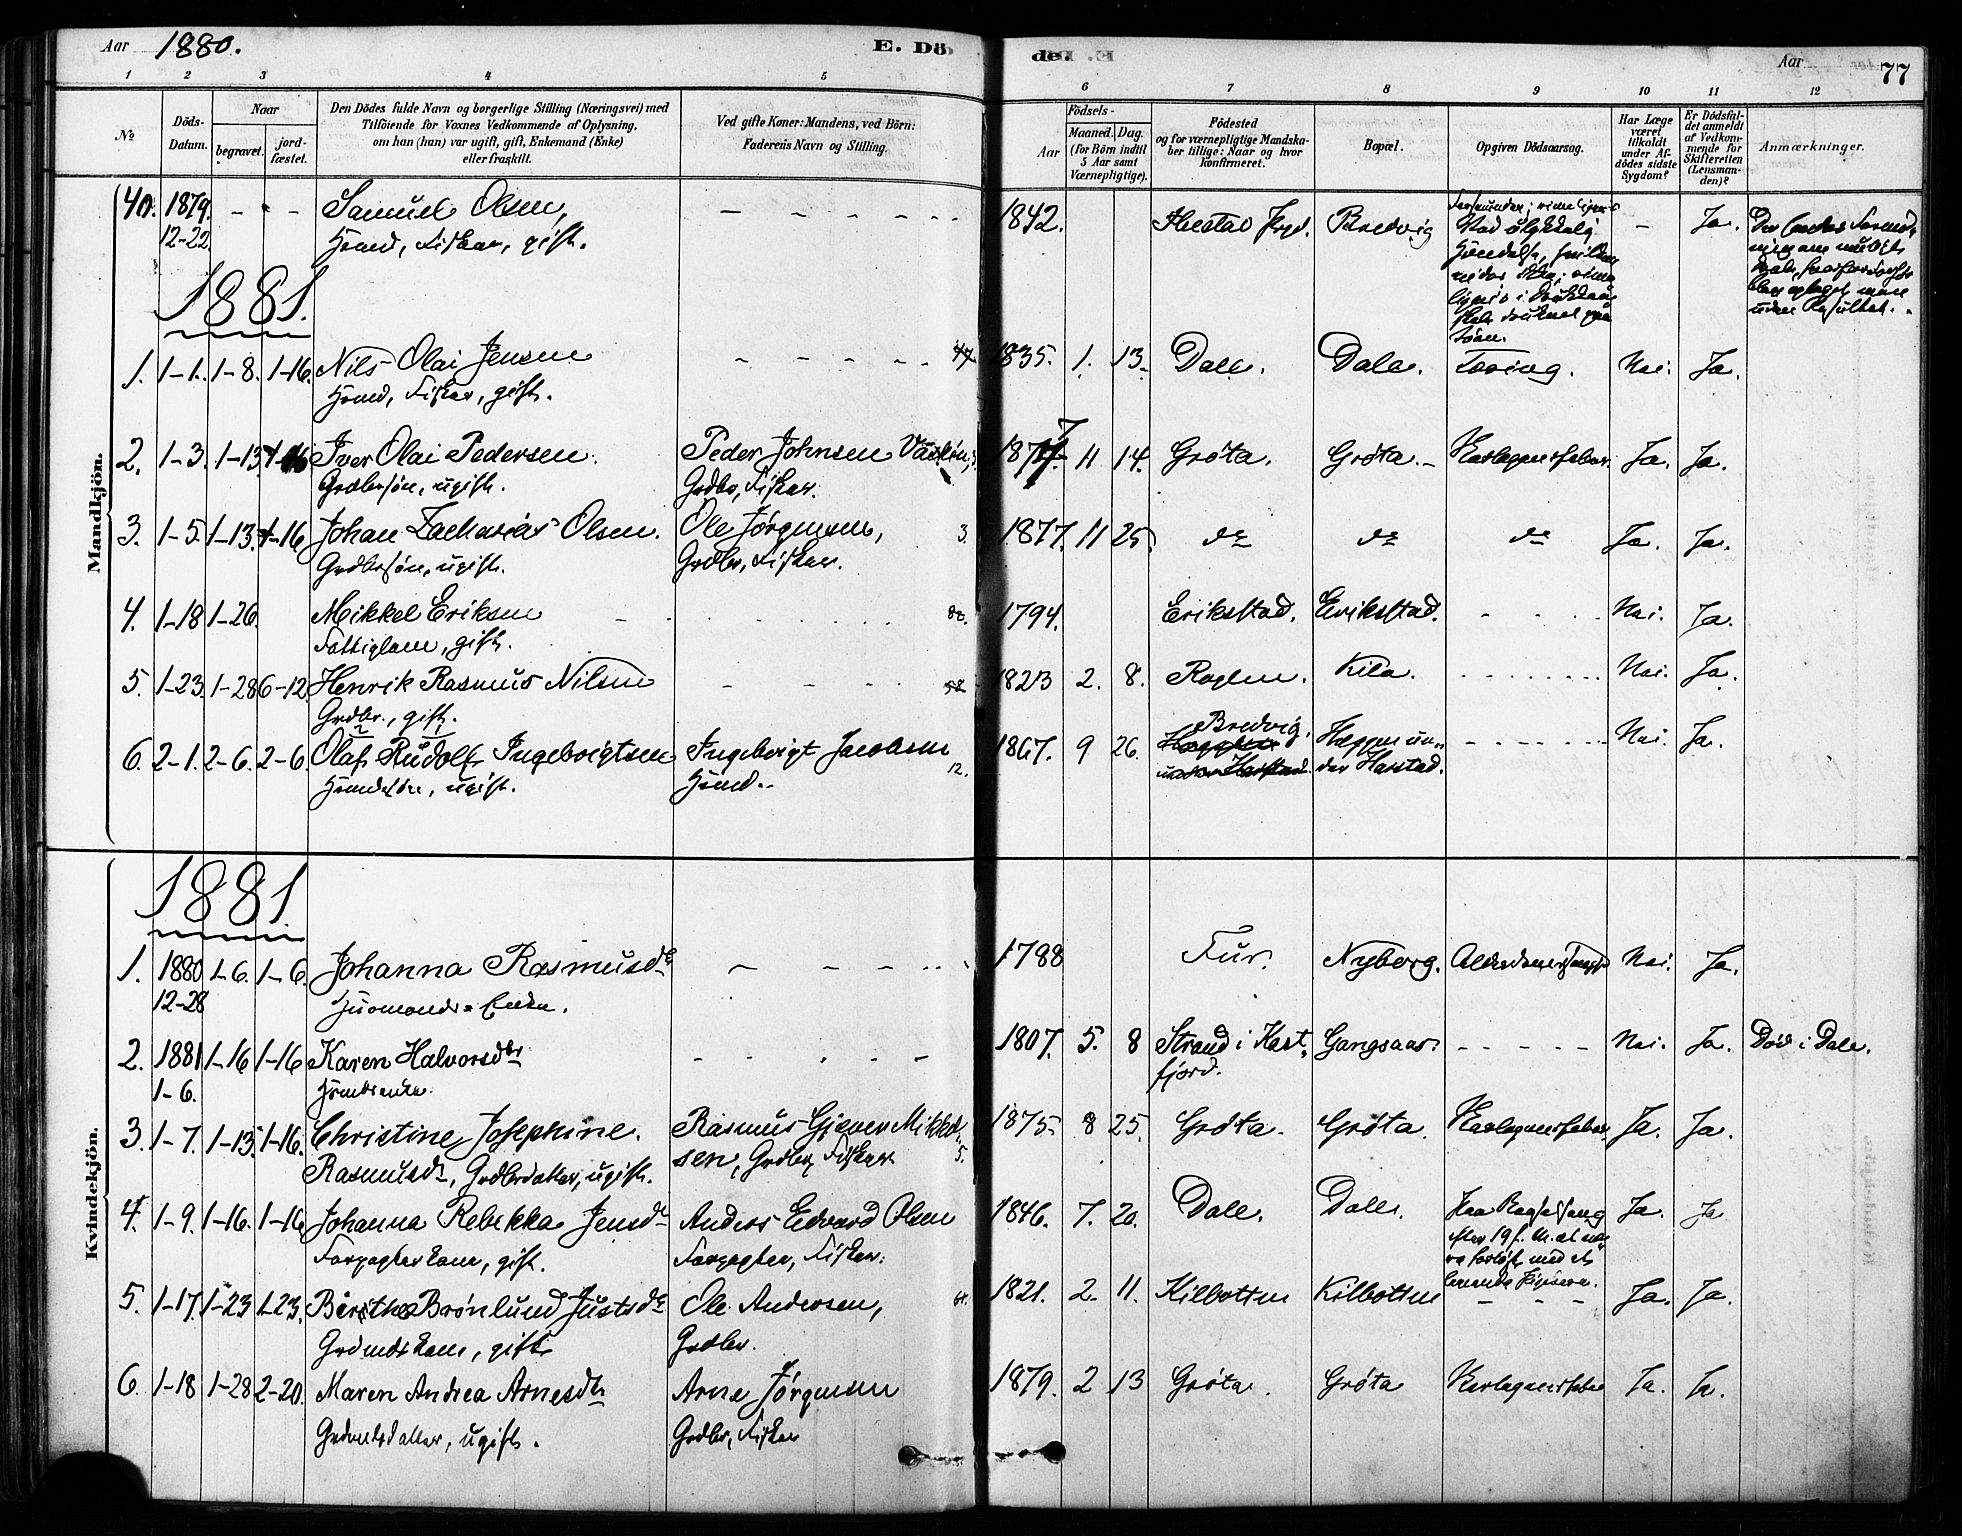 Aar 1880.
E. Döde.
Aar
77
1 2 3 4 5 6 7 8 9 10 11 12
№
Döds-Datum.
Naar
begravet.
jordfæstet.
Den Dödes fulde Navn og borgerlige Stilling (Næringsvei) med
Tilföiende for Voxnes Vedkommende af Oplysning,
om han (hun) var ugift, gift, Enkemand (Enke)
eller fraskilt.
Ved gifte Koner: Mandens, ved Börn:
Faderens Navn og Stilling.
Födsels-
Aar
Maaned. Dag.
(for Börn indtil
5 Aar samt
Værnepligtige).
Födested
og for værnepligtige Mandska-
ber tillige: Naar og hvor
konfirmeret.
Bopæl.
Opgiven Dödsaarsag.
Har Læge
været
tilkaldt
under Af-
dödes sidste
Sygdom?
Er Dödsfal-
det anmeldt
af Vedkom-
mende for
Skifteretten
(Lensman-
den)?
Anmærkninger.
Mandkjön.
40. 1879. - - - Samuel Olsen, - - - 1842. Bredvig - Ja.
12-22 Hsmd, Fisker, gift.
1881.
1. 1-1. 1-8. 1-16. Nils Olai Jensen - - - 1835. 1. 13. Dale. Dale. Nei. Ja.
Hsmd, Fisker, gift.
2. 1-3. 1-13. 1-16 Iver Olai Pedersen. Peder Johnsen 1877 11 14. Grøta. Grøta. Ja. Ja.
Grdbrsøn, ugift. Grdbr, Fisker.
3. 1-5. 1-13. 1-16 Johan Zacharias Olsen. Ole Jørgensen, 3. 1877. 11 25. do do do Ja. Ja.
Grdbrsøn, ugift. Grdbr, Fisker.
4. 1-18 1-26. Mikkel Eriksen - - - 1794. Erikstad. Erikstad. - - - Nei. Ja.
Fattiglem, gift.
5. 1-23. 1-28 6-12. Henrik Rasmus Nilsen - - - 58 1823 2. 8. Kila. - - - Nei. Ja.
Grdbr., gift.
6. 2-1. 2-6. 2-6. Olaf Rudolf Ingebrigtsen Ingebrigt Jacobsen 12. 1867. 9 26. Bredvig. Heggen un-
der Harstad. - - - Nei. Ja.
Hsmdssøn, ugift. Hsmd.
Kvindekjön.
1881.
1. 1880 1-6. 1-6. Johanna Rasmusdr - - - 1788 Fur. Nyborg. Nei. Ja.
12-28 Husmands Enke.
2. 1881 1-16 1-16 Karen Halvorsdtr - - - 1807. 5. 8 Strand i Kast-
fjord. Gangsaas. - - - Nei. Ja. Død i Dale.
1-6. Hsmdsenke.
3. 1-7. 1-13. 1-16. Christine Josephine Rasmus Gjæver Mikkel-
sen, Grdbr, Fisker 5. 1875. 8 25. Grøta. Grøta. Ja. Ja.
Rasmusdr, Grdbrdatter, ugift.
4. 1-9. 1-16. 1-16 Johanna Rebekka Jensdr Anders Edvard Olsen 1846. 7. 20. Dale. Dale. Ja. Ja
Forpagterkone, gift. Forpagter, Fisker.
5. 1-17. 1-23 1-23. Berthe Brønlund Justsdr Ole Andersen, 1821. 2. 11. Kilbotten Kilbotten - - - Ja. Ja.
Grdmdskone, gift Grdbr.
6. 1-18 1-28 2-20. Maren Andrea Arnesdtr Arne Jørgensen 1879. 2 13 Grøta. Grøta Ja. Ja.
Grdmdsdatter, ugift. Grdbr, Fisker